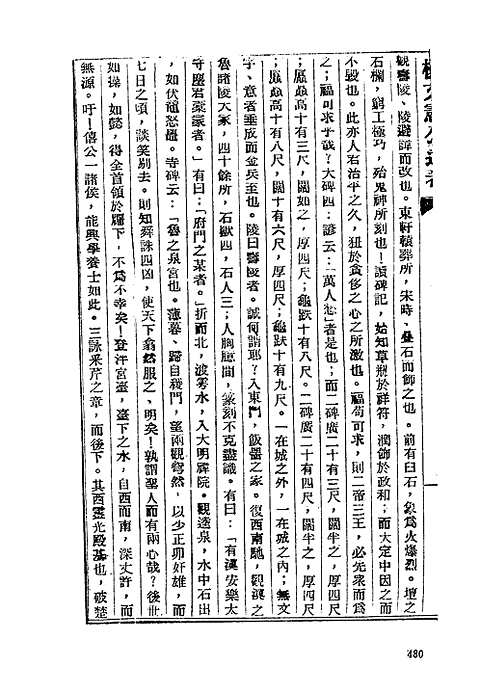 觀壽陵、陵避諱而改也。東軒轅葬所，宋時、疊石而飾之也。前有白石，象為火爆烈。壇之
石欄，窮工極巧，殆鬼神所刻也！讀碑記，始知草粗於祥符，潤飾於政和；而大定中因之而
不毀也。此亦人君治平之久，狃於貪侈之心之所激也。福苟可求，則二帝三王，必先衆而為
之；福可求乎哉？大碑四：諺云：「萬人愁」者是也；而二碑廣二十有三尺，闊半之，厚四尺
；贔屭高十有三尺，闊如之，厚四尺；龜趺十有八尺。二碑廣二十有四尺，闊半之，厚四尺
；贔屭高十有八尺，闊十有六尺，厚四尺；龜趺十有九尺。一在城之外，一在城之內；無文
字、意者垂成而金兵至也。陵曰壽陵者。誠何謂耶？入東門，飯盥之家。復西南馳，觀漢之
魯諸陵大冢，四十餘所，石獸四，石人三；人胸臆間，篆刻不克盡識。有曰：「有漢安樂太
守麃君墓者。」有曰：「府門之某者。」折而北，渡雩水，入大明禪院。觀逵泉，水中石出
，如伏黿怒鼉。寺碑云：「魯之泉宮也。薄暮、歸自稷門，望兩觀穹然，以少正卯奸雄，而
七日之頃，談笑剔去。則知舜誅四凶，使天下翕然服之、明矣！孰謂聖人而有兩心哉？後世
如操，如懿，得全首領於牖下，不為不幸矣！登泮宮臺，臺下之水，自西而南，深丈許，而
無源。吁！僖公一諸侯，能興學養士如此。三詠采芹之章，而後下。其西靈光殿基也，破楚
480